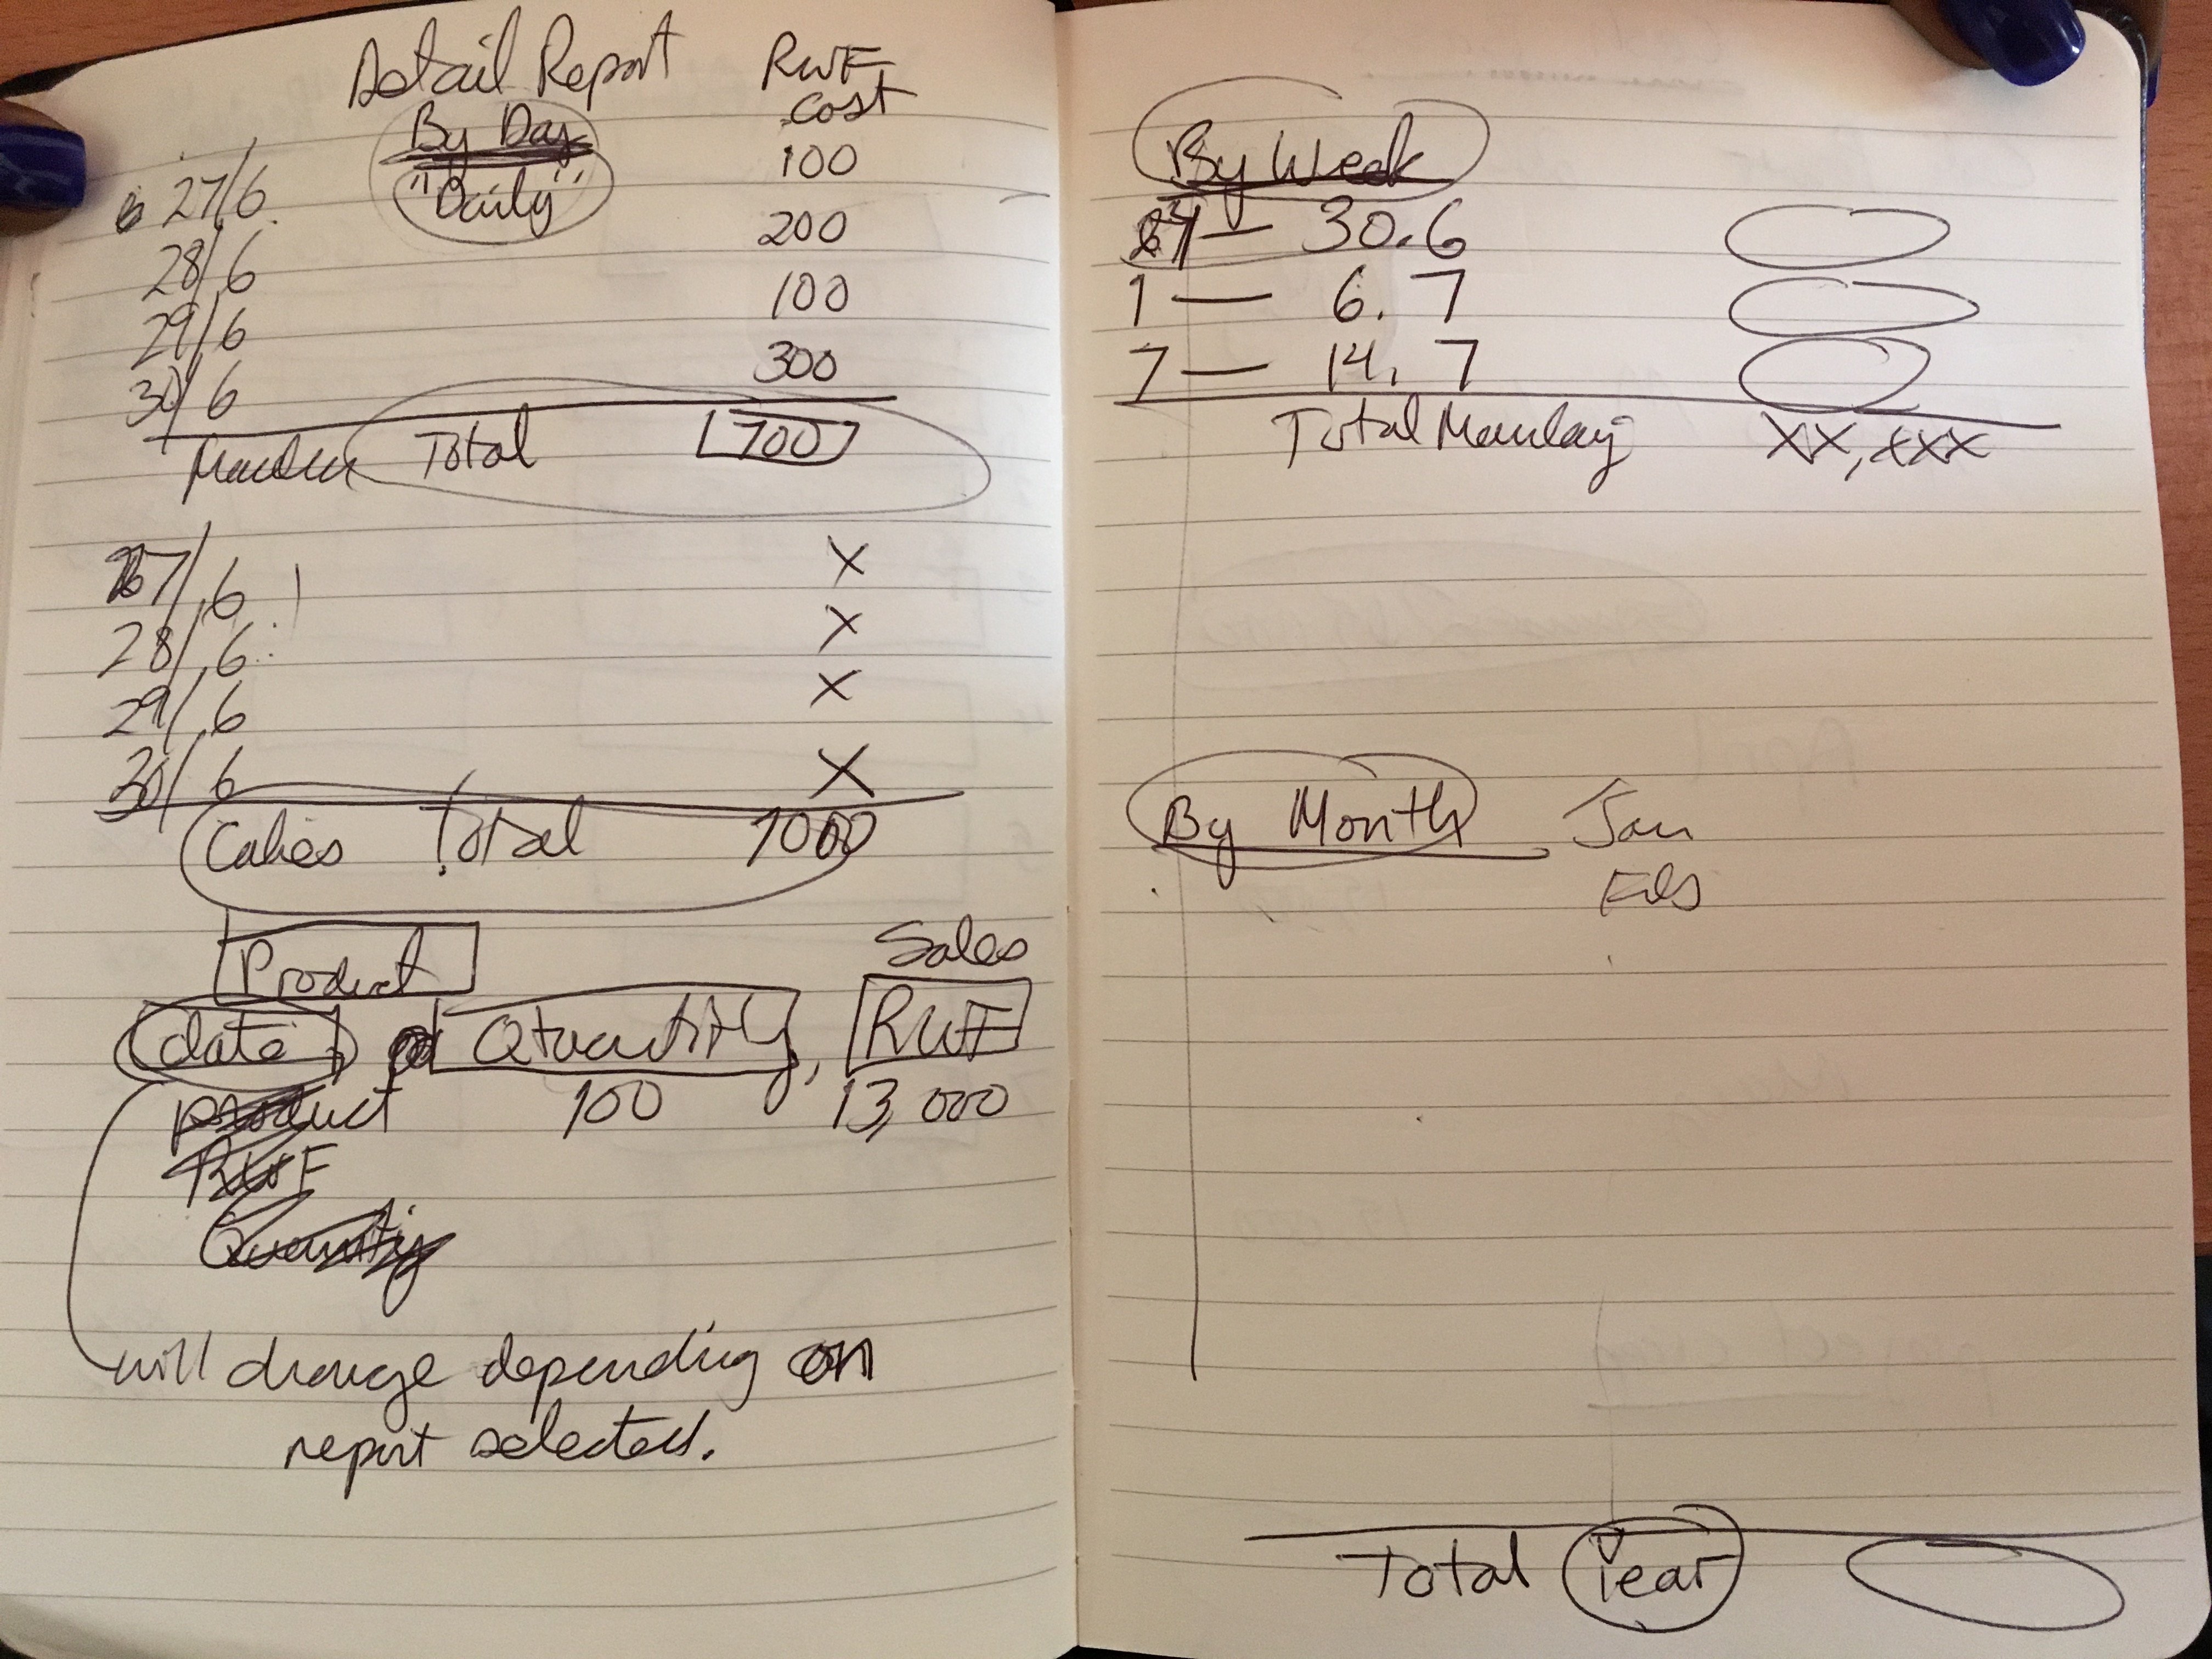 Detail Report RWF
cost
By Day
"Daily"
27/6 100
28/6 200
29/6 100
30/6 300
Total 700
27/6 X
28/6 X
29/6 X
30/6 X
Cakes Total 1000
Product
Sales
date Quantity, RWF
product 100 13,000
RWF
Quantity
will change depending on
report selected.
By Week
27 — 30.6
1 — 6.7
7 — 14.7
Total XX,XXX
By Month Jan
Feb
Total Year